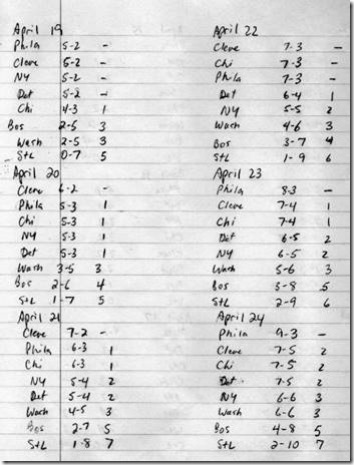 April 19
Phila 5-2 -
Cleve 5-2 -
NY 5-2 -
Det 5-2 -
Chi 4-3 1
Bos 2-5 3
Wash 2-5 3
StL 0-7 5
April 20
Cleve 6-2 -
Phila 5-3 1
Chi 5-3 1
NY 5-3 1
Det 5-3 1
Wash 3-5 3
Bos 2-6 4
StL 1-7 5
April 21
Cleve 7-2 -
Phila 6-3 1
Chi 6-3 1
NY 5-4 2
Det 5-4 2
Wash 4-5 3
Bos 2-7 5
StL 1-8 7
April 22
Cleve 7-3 -
Chi 7-3 -
Phila 7-3 -
Det 6-4 1
NY 5-5 2
Wash 4-6 3
Bos 3-7 4
StL 1-9 6
April 23
Phila 8-3 -
Cleve 7-4 1
Chi 7-4 1
Det 6-5 2
NY 6-5 2
Wash 5-6 3
Bos 3-8 5
StL 2-9 6
April 24
Phila 9-3 -
Cleve 7-5 2
Chi 7-5 2
Det 7-5 2
NY 6-6 3
Wash 6-6 3
Bos 4-8 5
StL 2-10 7